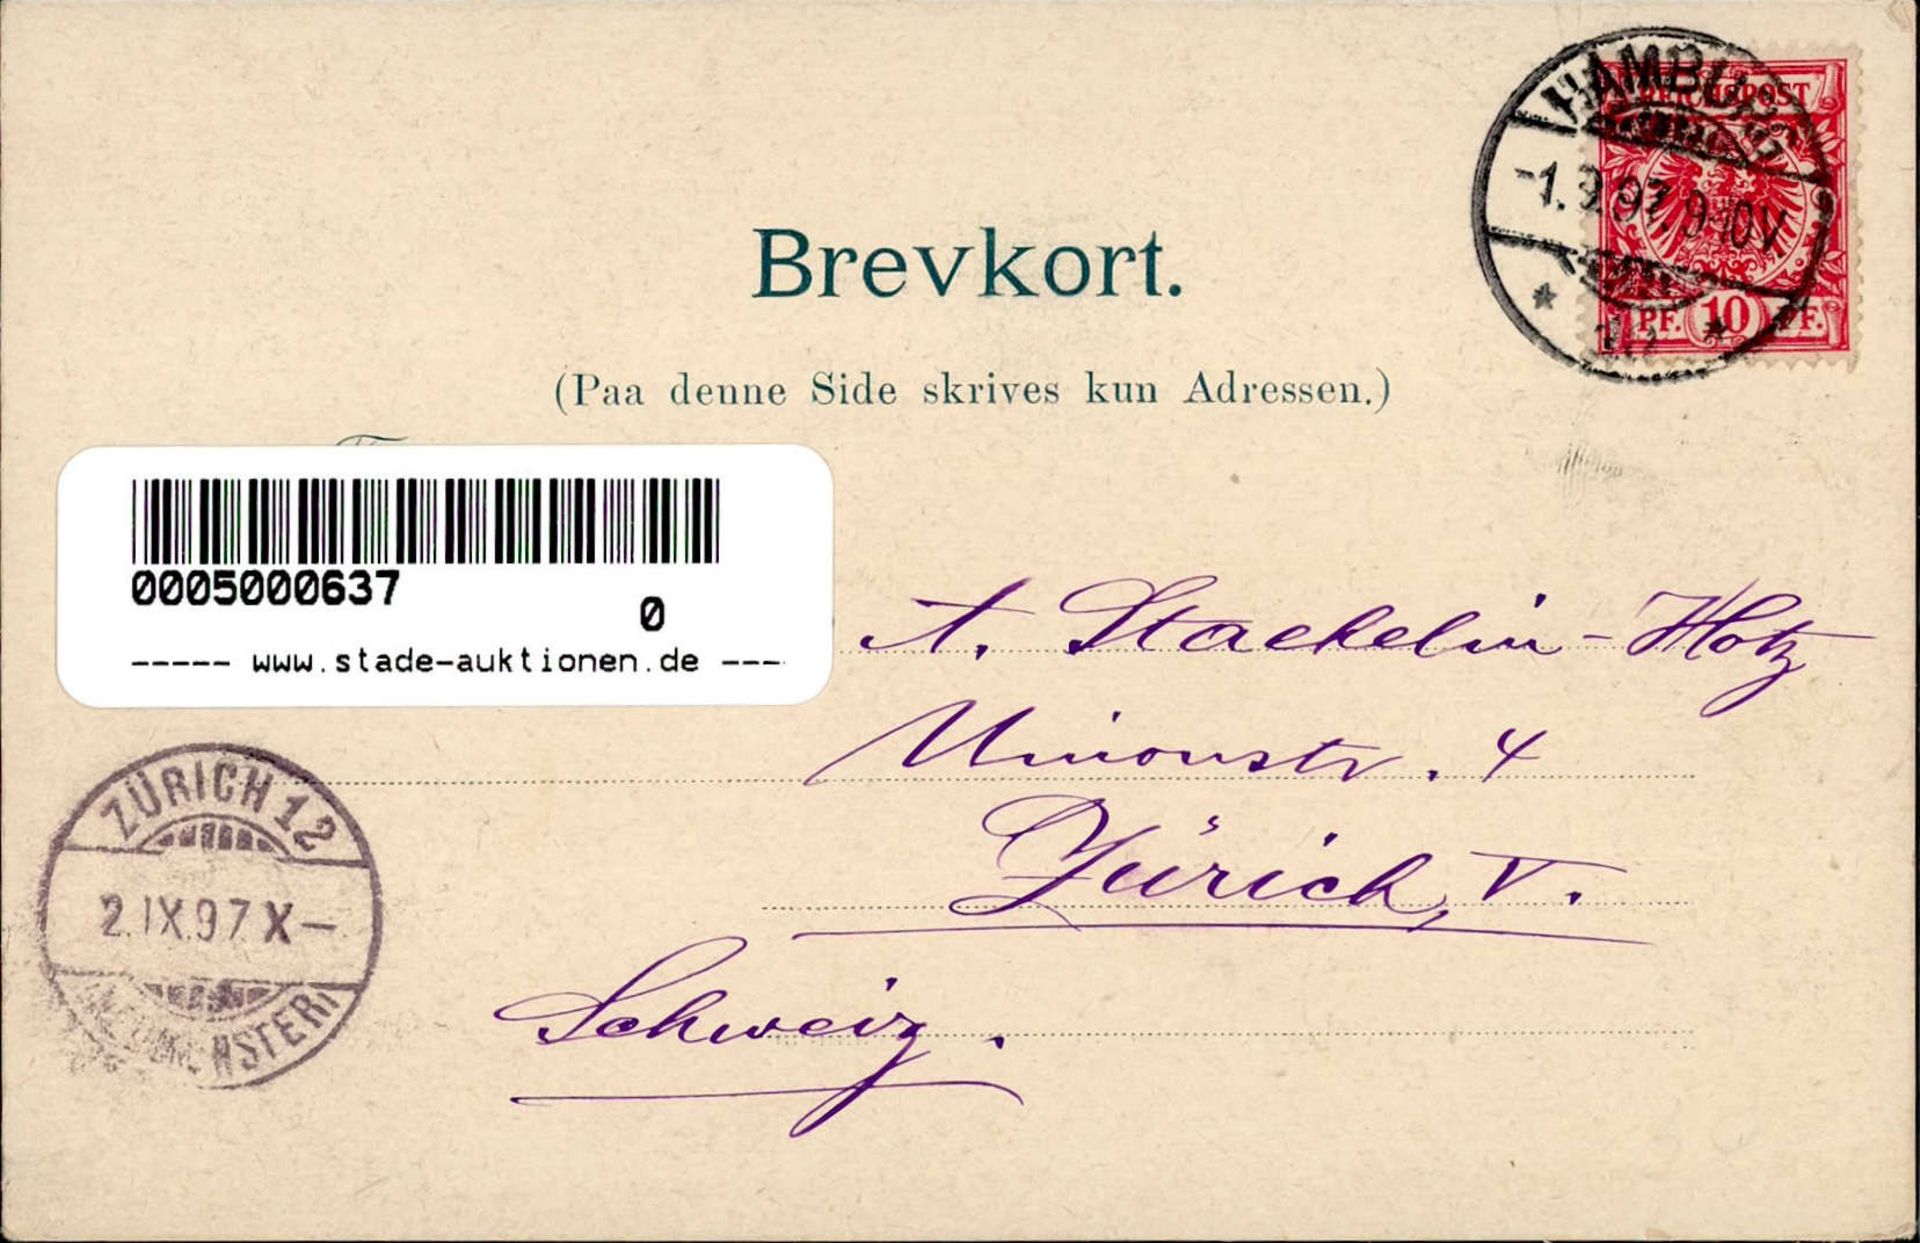 HAMBURG
-1.9.97. 9-10V
* 1 *
REICHSPOST
PF. 10 PF.
Brevkort.
(Paa denne Side skrives kun Adressen.)
0005000637
0
----- www.stade-auktionen.de ---
A. Staehelin-Hotz
Unionstr. 4
Zürich, V.
Schweiz.
ZÜRICH 12
2.IX.97.X-
(NEUMÜNSTER)